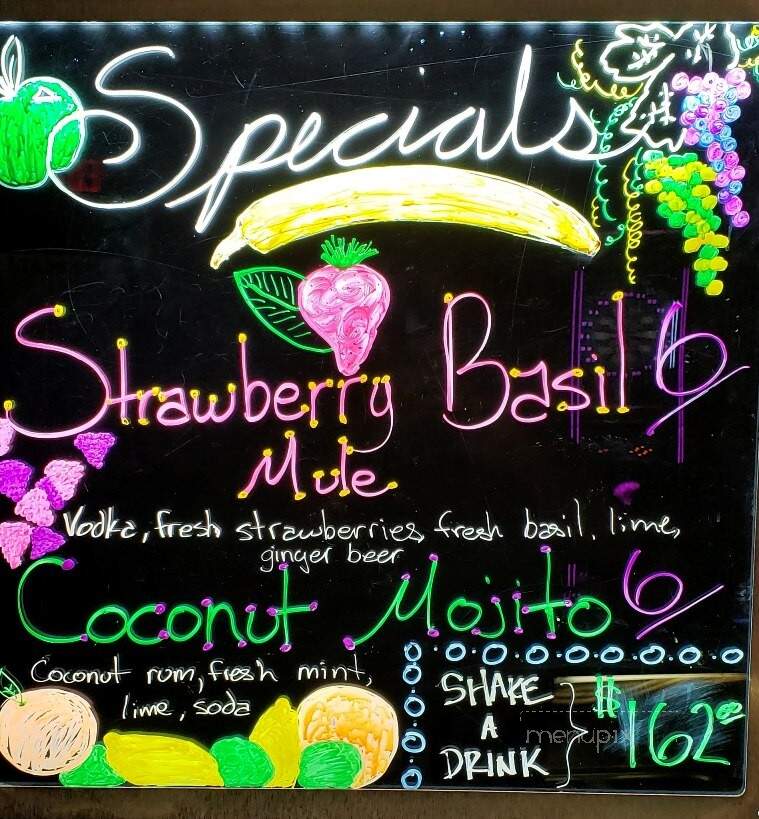 Specials
Strawberry Basil 6
Mule
Vodka, fresh strawberries, fresh basil, lime,
ginger beer
Coconut Mojito 6
Coconut rum, fresh mint,
lime, soda
SHAKE
A
DRINK
$162
menupix